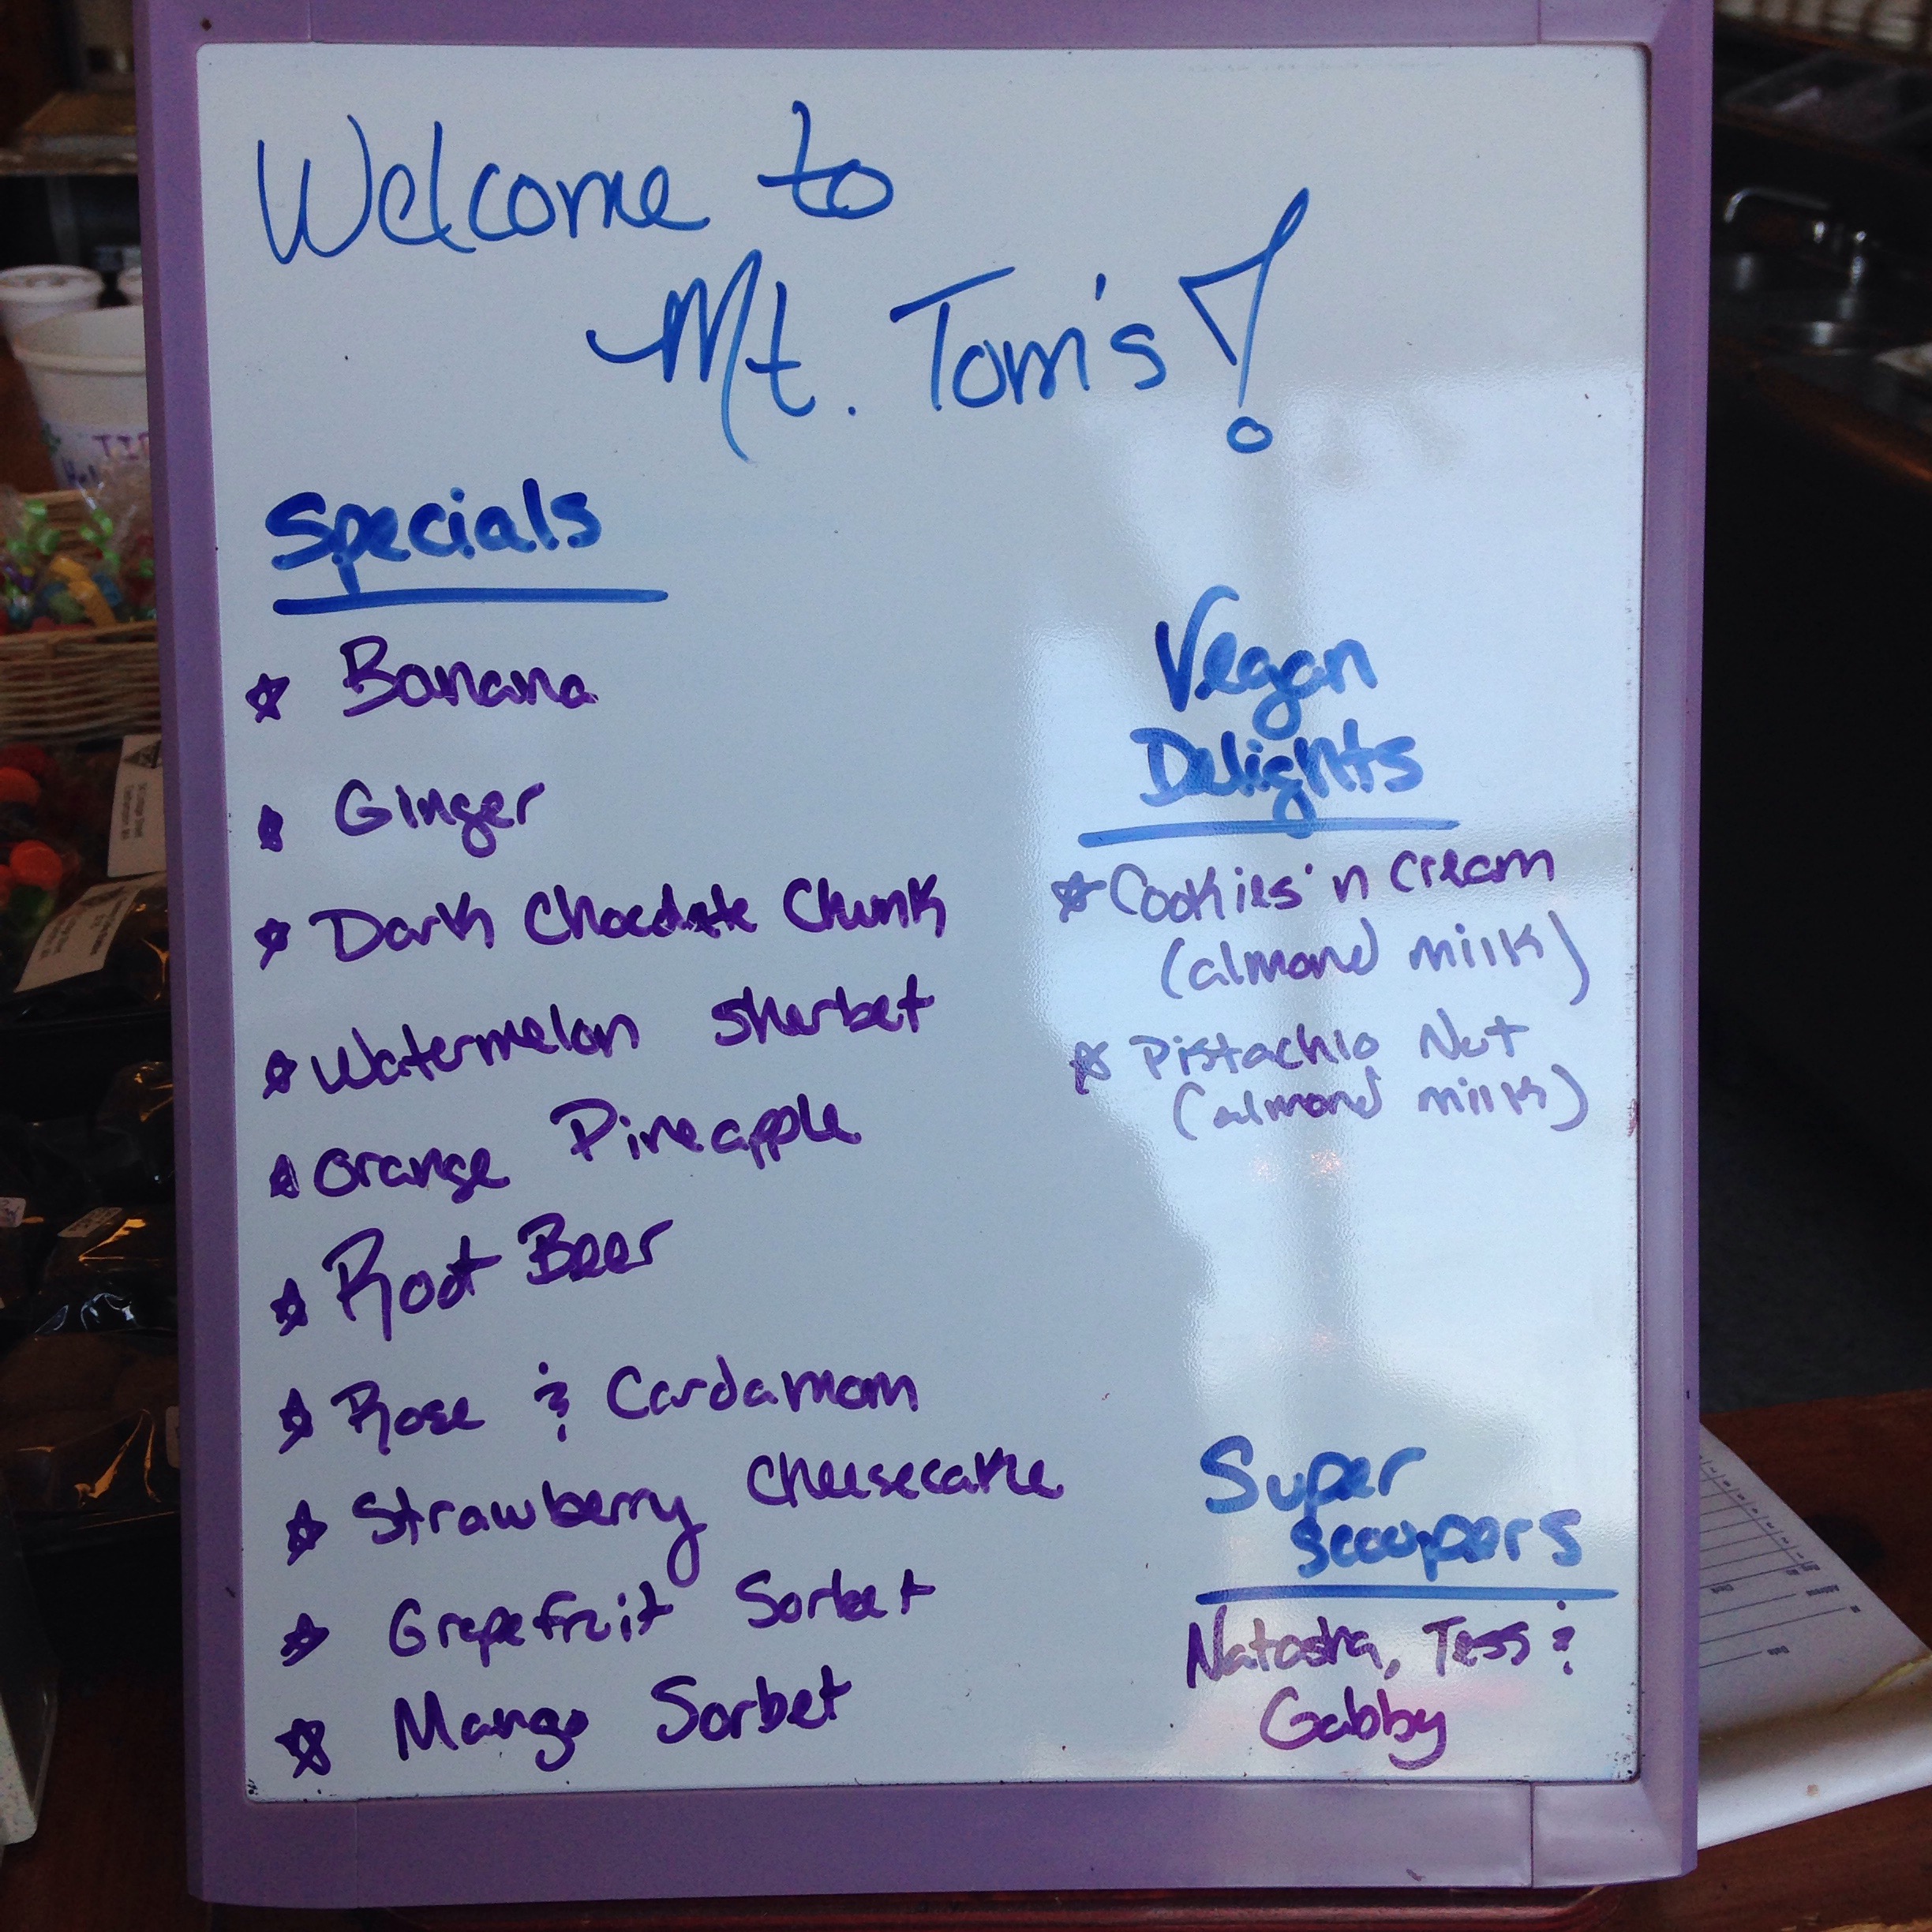 Welcome to
Mt. Tom's!
Specials
Banana
Ginger
Dark Chocolate Chunk
Watermelon Sherbet
Orange Pineapple
Root Beer
Rose & Cardamom
Strawberry Cheesecake
Grapefruit Sorbet
Mango Sorbet
Vegan
Delights
Cookies 'n Cream
(almond milk)
Pistachio Nut
(almond milk)
Super
Scoopers
Natasha, Tess &
Gabby